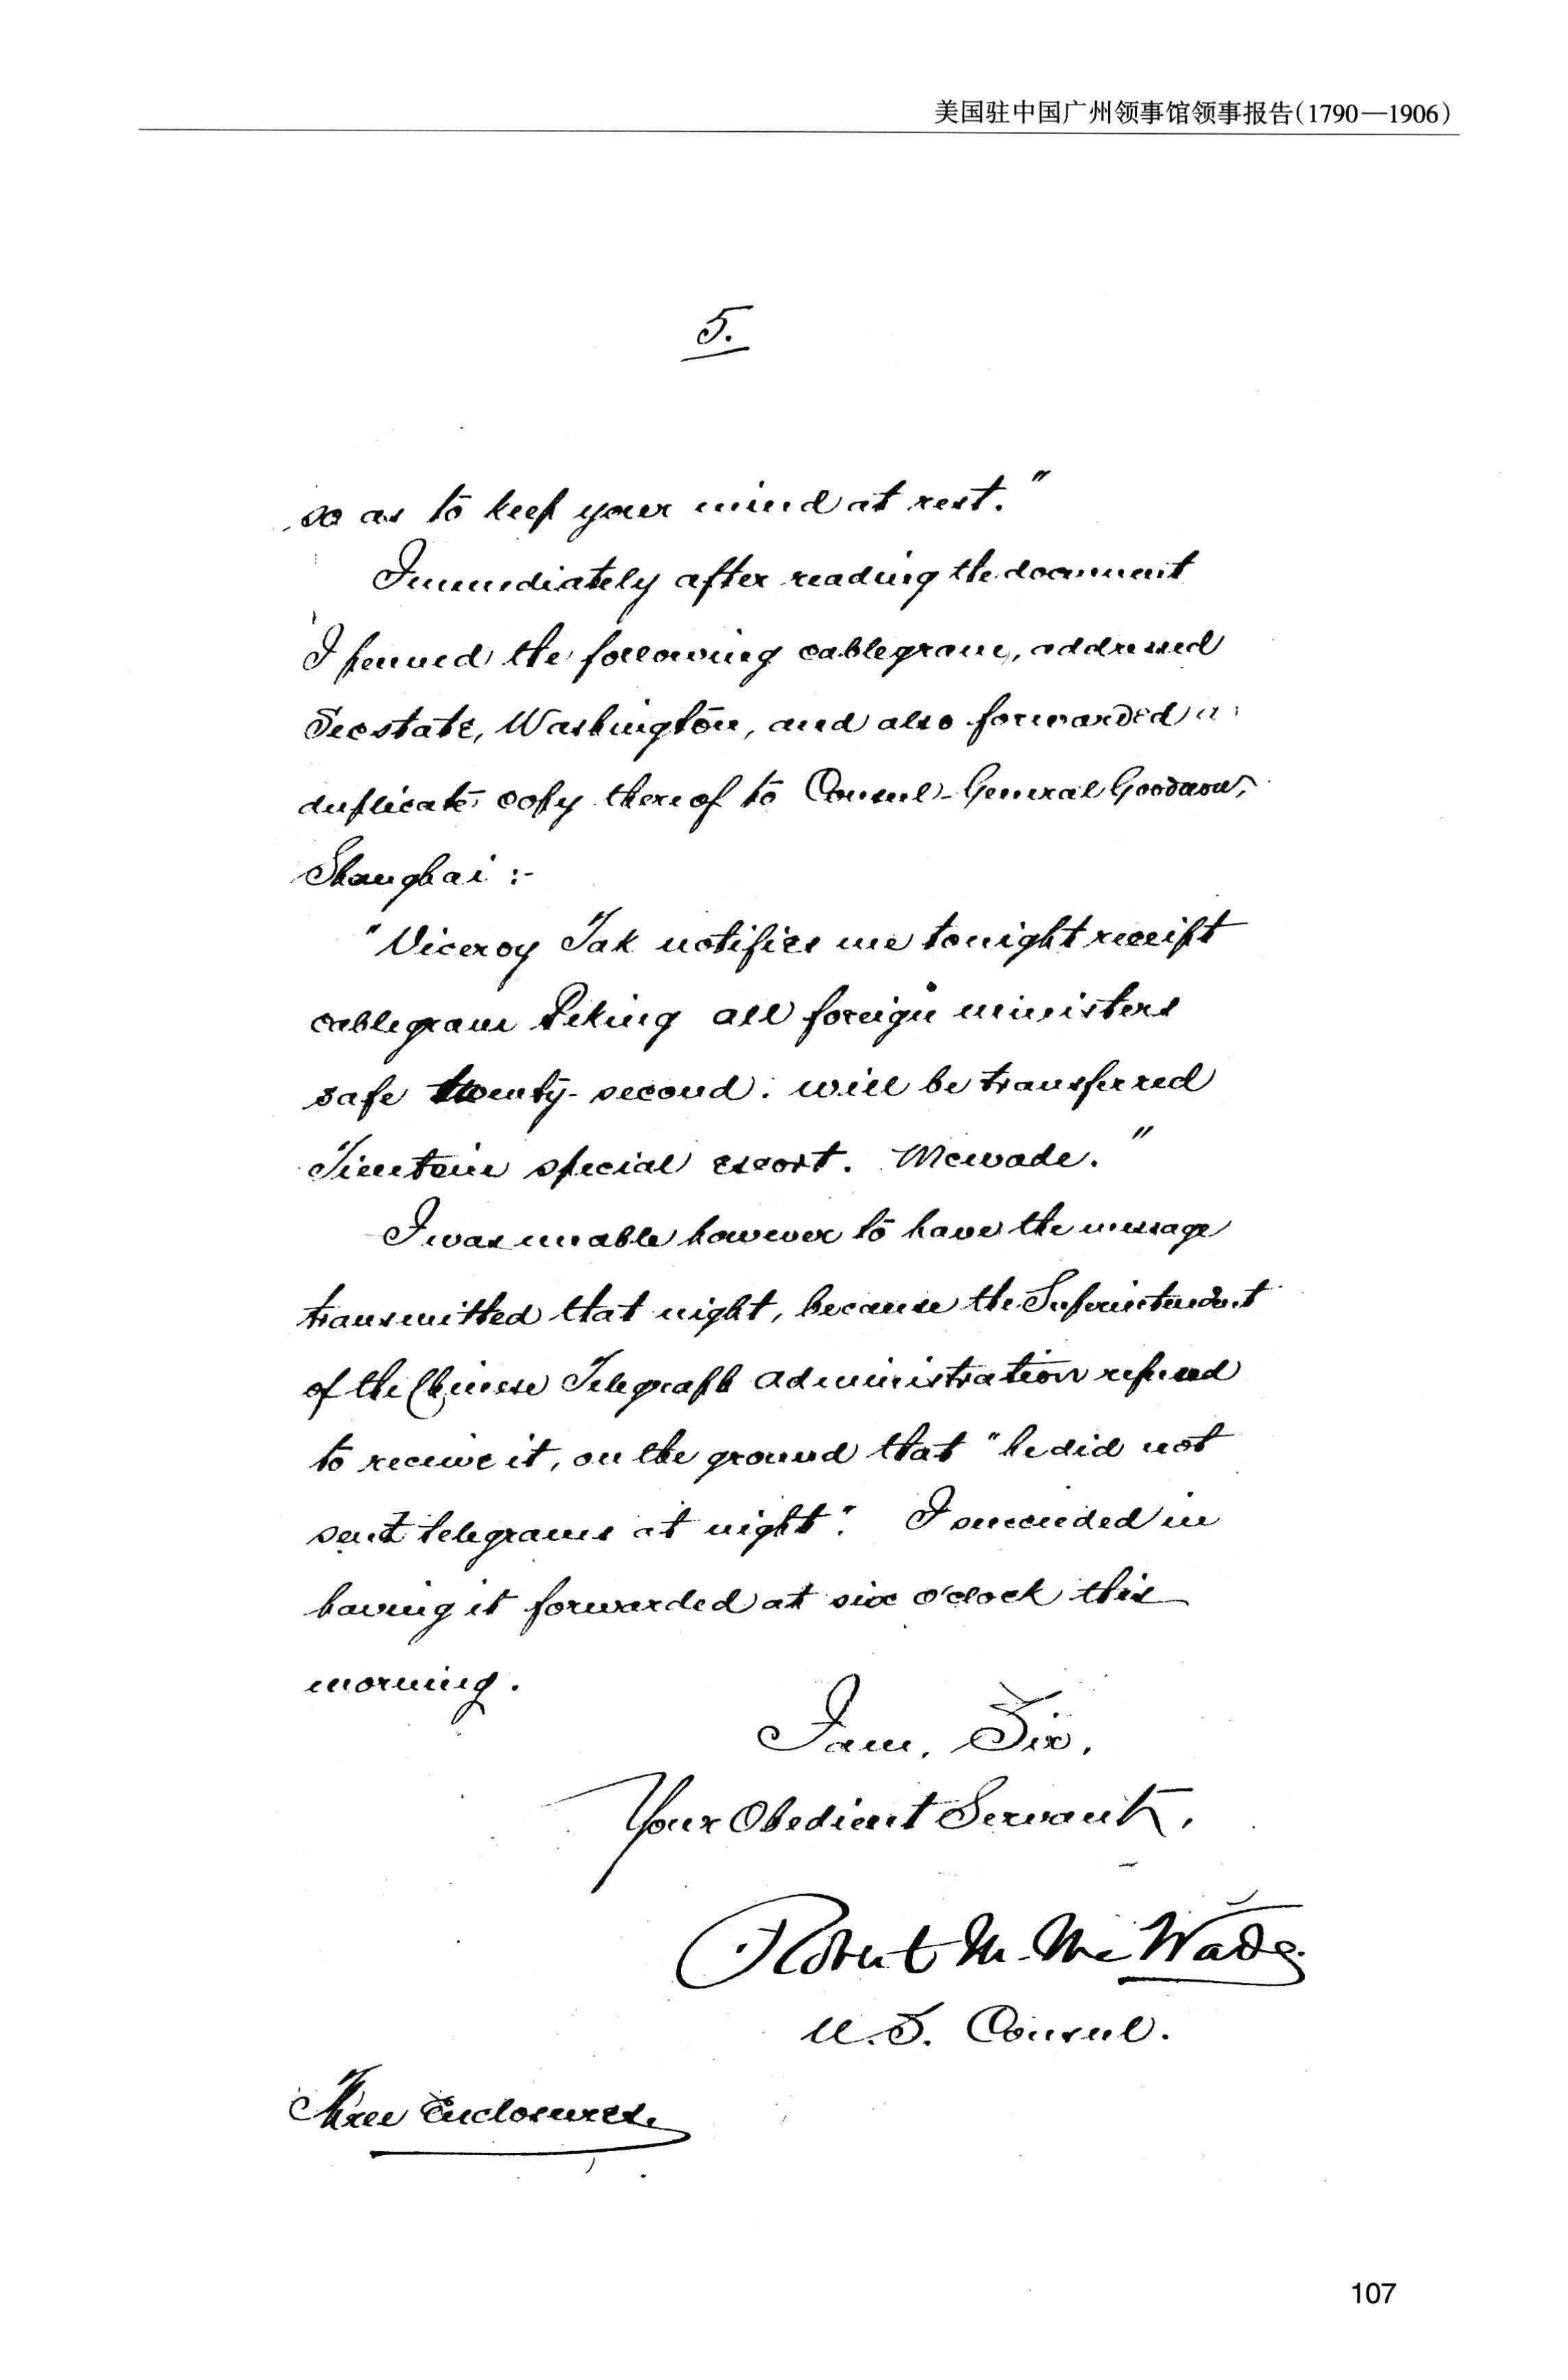 美国驻中国广州领事馆领事报告(1790—1906)
5.
so as to keep your mind at rest."
Immediately after reading the document
I penned the following cablegram, addressed
Secstate, Washington, and also forwarded a
duplicate copy thereof to Consul-General Goodnow,
Shanghai :-
"Viceroy Tak notifies me tonight receipt
cablegram Peking all foreign ministers
safe twenty-second. will be transferred
Tientsin special escort. McWade."
I was unable however to have the message
transmitted that night, because the Superintendent
of the Chinese Telegraph Administration refused
to receive it, on the ground that "he did not
send telegrams at night". I succeeded in
having it forwarded at six o'clock this
morning.
I am, Sir,
Your Obedient Servant,
Robert M. McWade
U.S. Consul.
Three Enclosures.
107